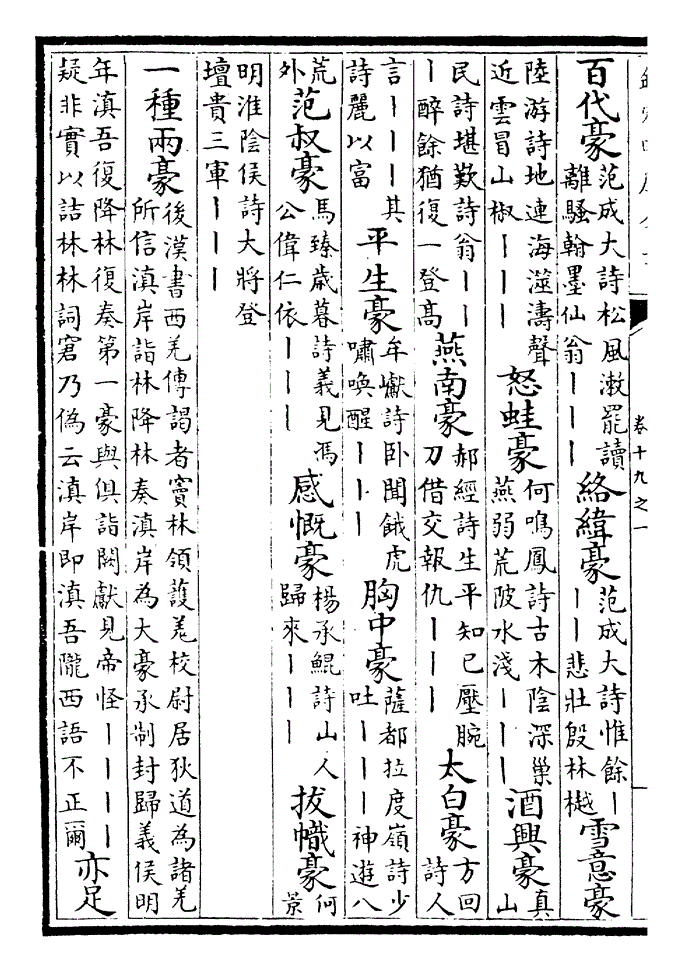 卷十九之一
百代豪范成大詩松風漱罷讀離騷翰墨仙翁丨丨丨絡緯豪范成大詩惟餘丨丨悲壯殷林樾雪意豪
陸游詩地連海澨濤聲近雲冒山椒丨丨丨怒蛙豪何鳴鳳詩古木陰深巢燕弱荒陂水淺丨丨丨酒興豪真山
民詩堪歎詩翁丨丨丨醉餘猶復一登髙燕南豪郝經詩生平知己壓腕刀借交報仇丨丨丨太白豪方回詩人
言丨丨丨其詩麗以富平生豪牟巘詩卧聞餓虎嘯喚醒丨丨丨胸中豪薩都拉度嶺詩少吐丨丨丨神遊八
荒外范叔豪馬臻歲暮詩義見馮公偉仁依丨丨丨感慨豪楊承鯤詩山人歸來丨丨丨拔幟豪何景
明淮陰侯詩大將登壇貴三軍丨丨丨
一種兩豪後漢書西羌傳謁者竇林領護羌校尉居狄道為諸羌所信滇岸詣林降林奏滇岸為大豪承制封歸義侯明
年滇吾復降林復奏第一豪與俱詣闕獻見帝怪丨丨丨丨疑非實以詰林林詞窘乃偽云滇岸即滇吾隴西語不正爾亦足